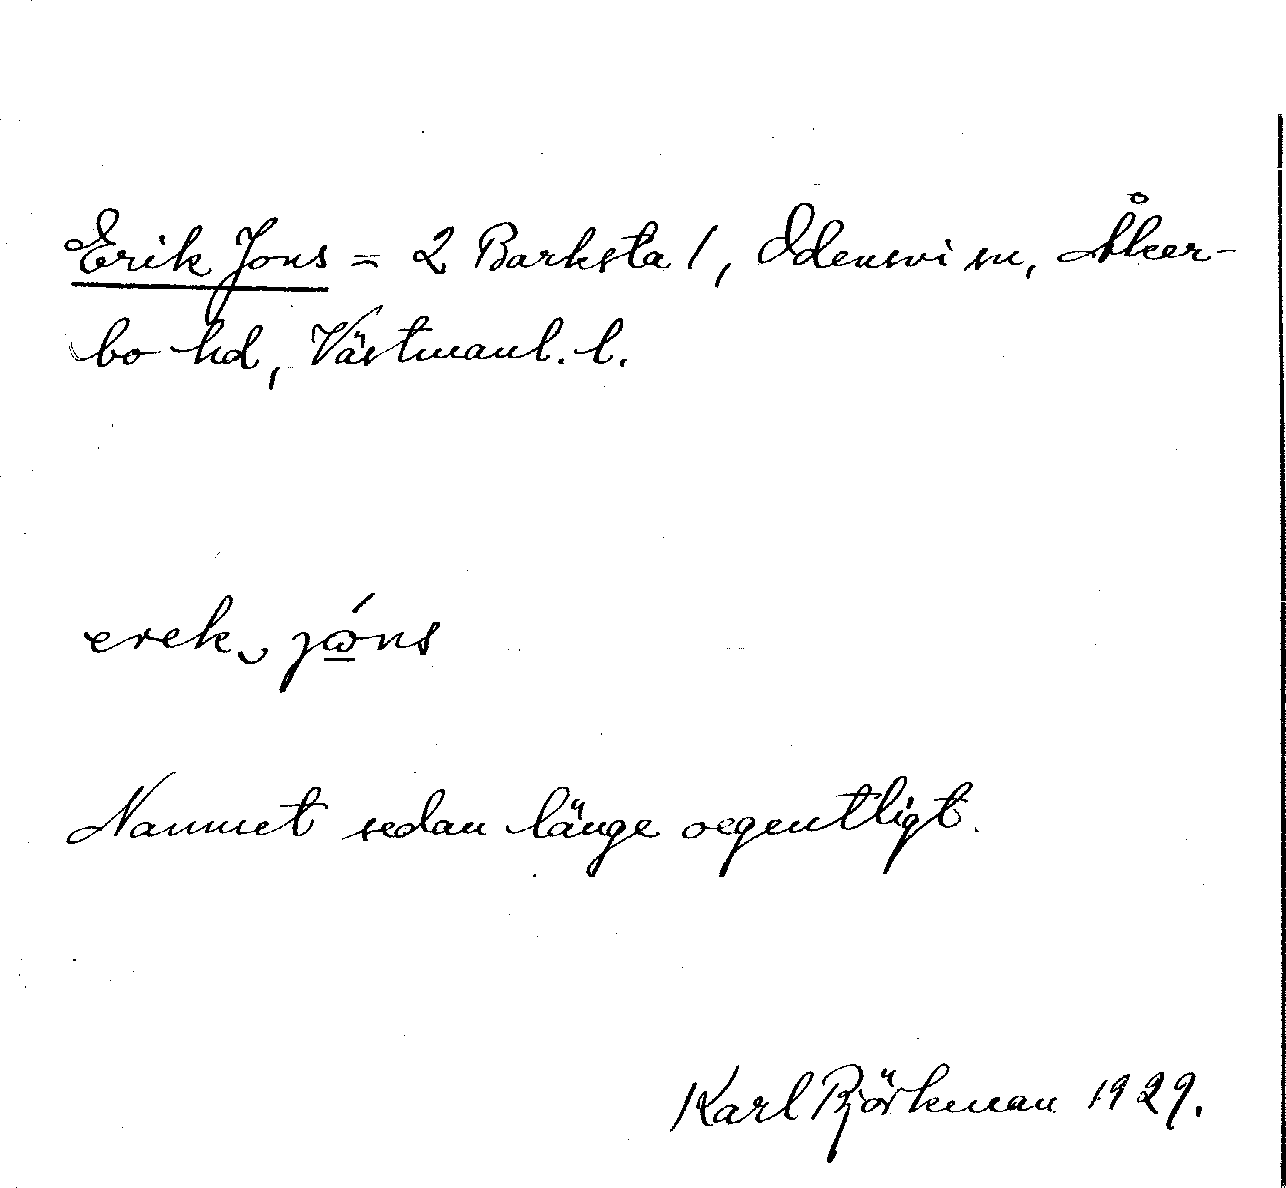 Erik Jons = 2 Barksta 1, Odensvi sn, Åker-
bo hd, Västmanl. l.
erek jóns
Namnet sedan länge oegentligt.
Karl Björkman 1929.